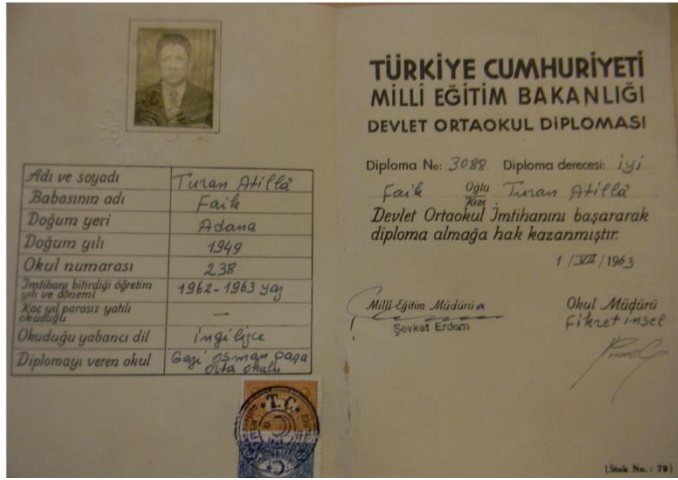 Adı ve soyadı Turan Atillâ
Babasının adı Faik
Doğum yeri Adana
Doğum yılı 1949
Okul numarası 238
İmtihanı bitirdiği öğretim yılı ve dönemi 1962-1963 yaz
Kaç yıl parasız yatılı okuduğu —
Okuduğu yabancı dil ingilizce
Diplomayı veren okul Gazi osman paşa orta okulu
T.C.
TÜRKİYE CUMHURİYETİ
MİLLİ EĞİTİM BAKANLIĞI
DEVLET ORTAOKUL DİPLOMASI
Diploma No: 3088 Diploma derecesi: iyi
Faik Oğlu Kızı Turan Atillâ
Devlet Ortaokul İmtihanını başararak
diploma almağa hak kazanmıştır.
1/VII/1963
Millî Eğitim Müdürü Okul Müdürü
Şevket Erdem Fikret insel
(Stok No.: 79)